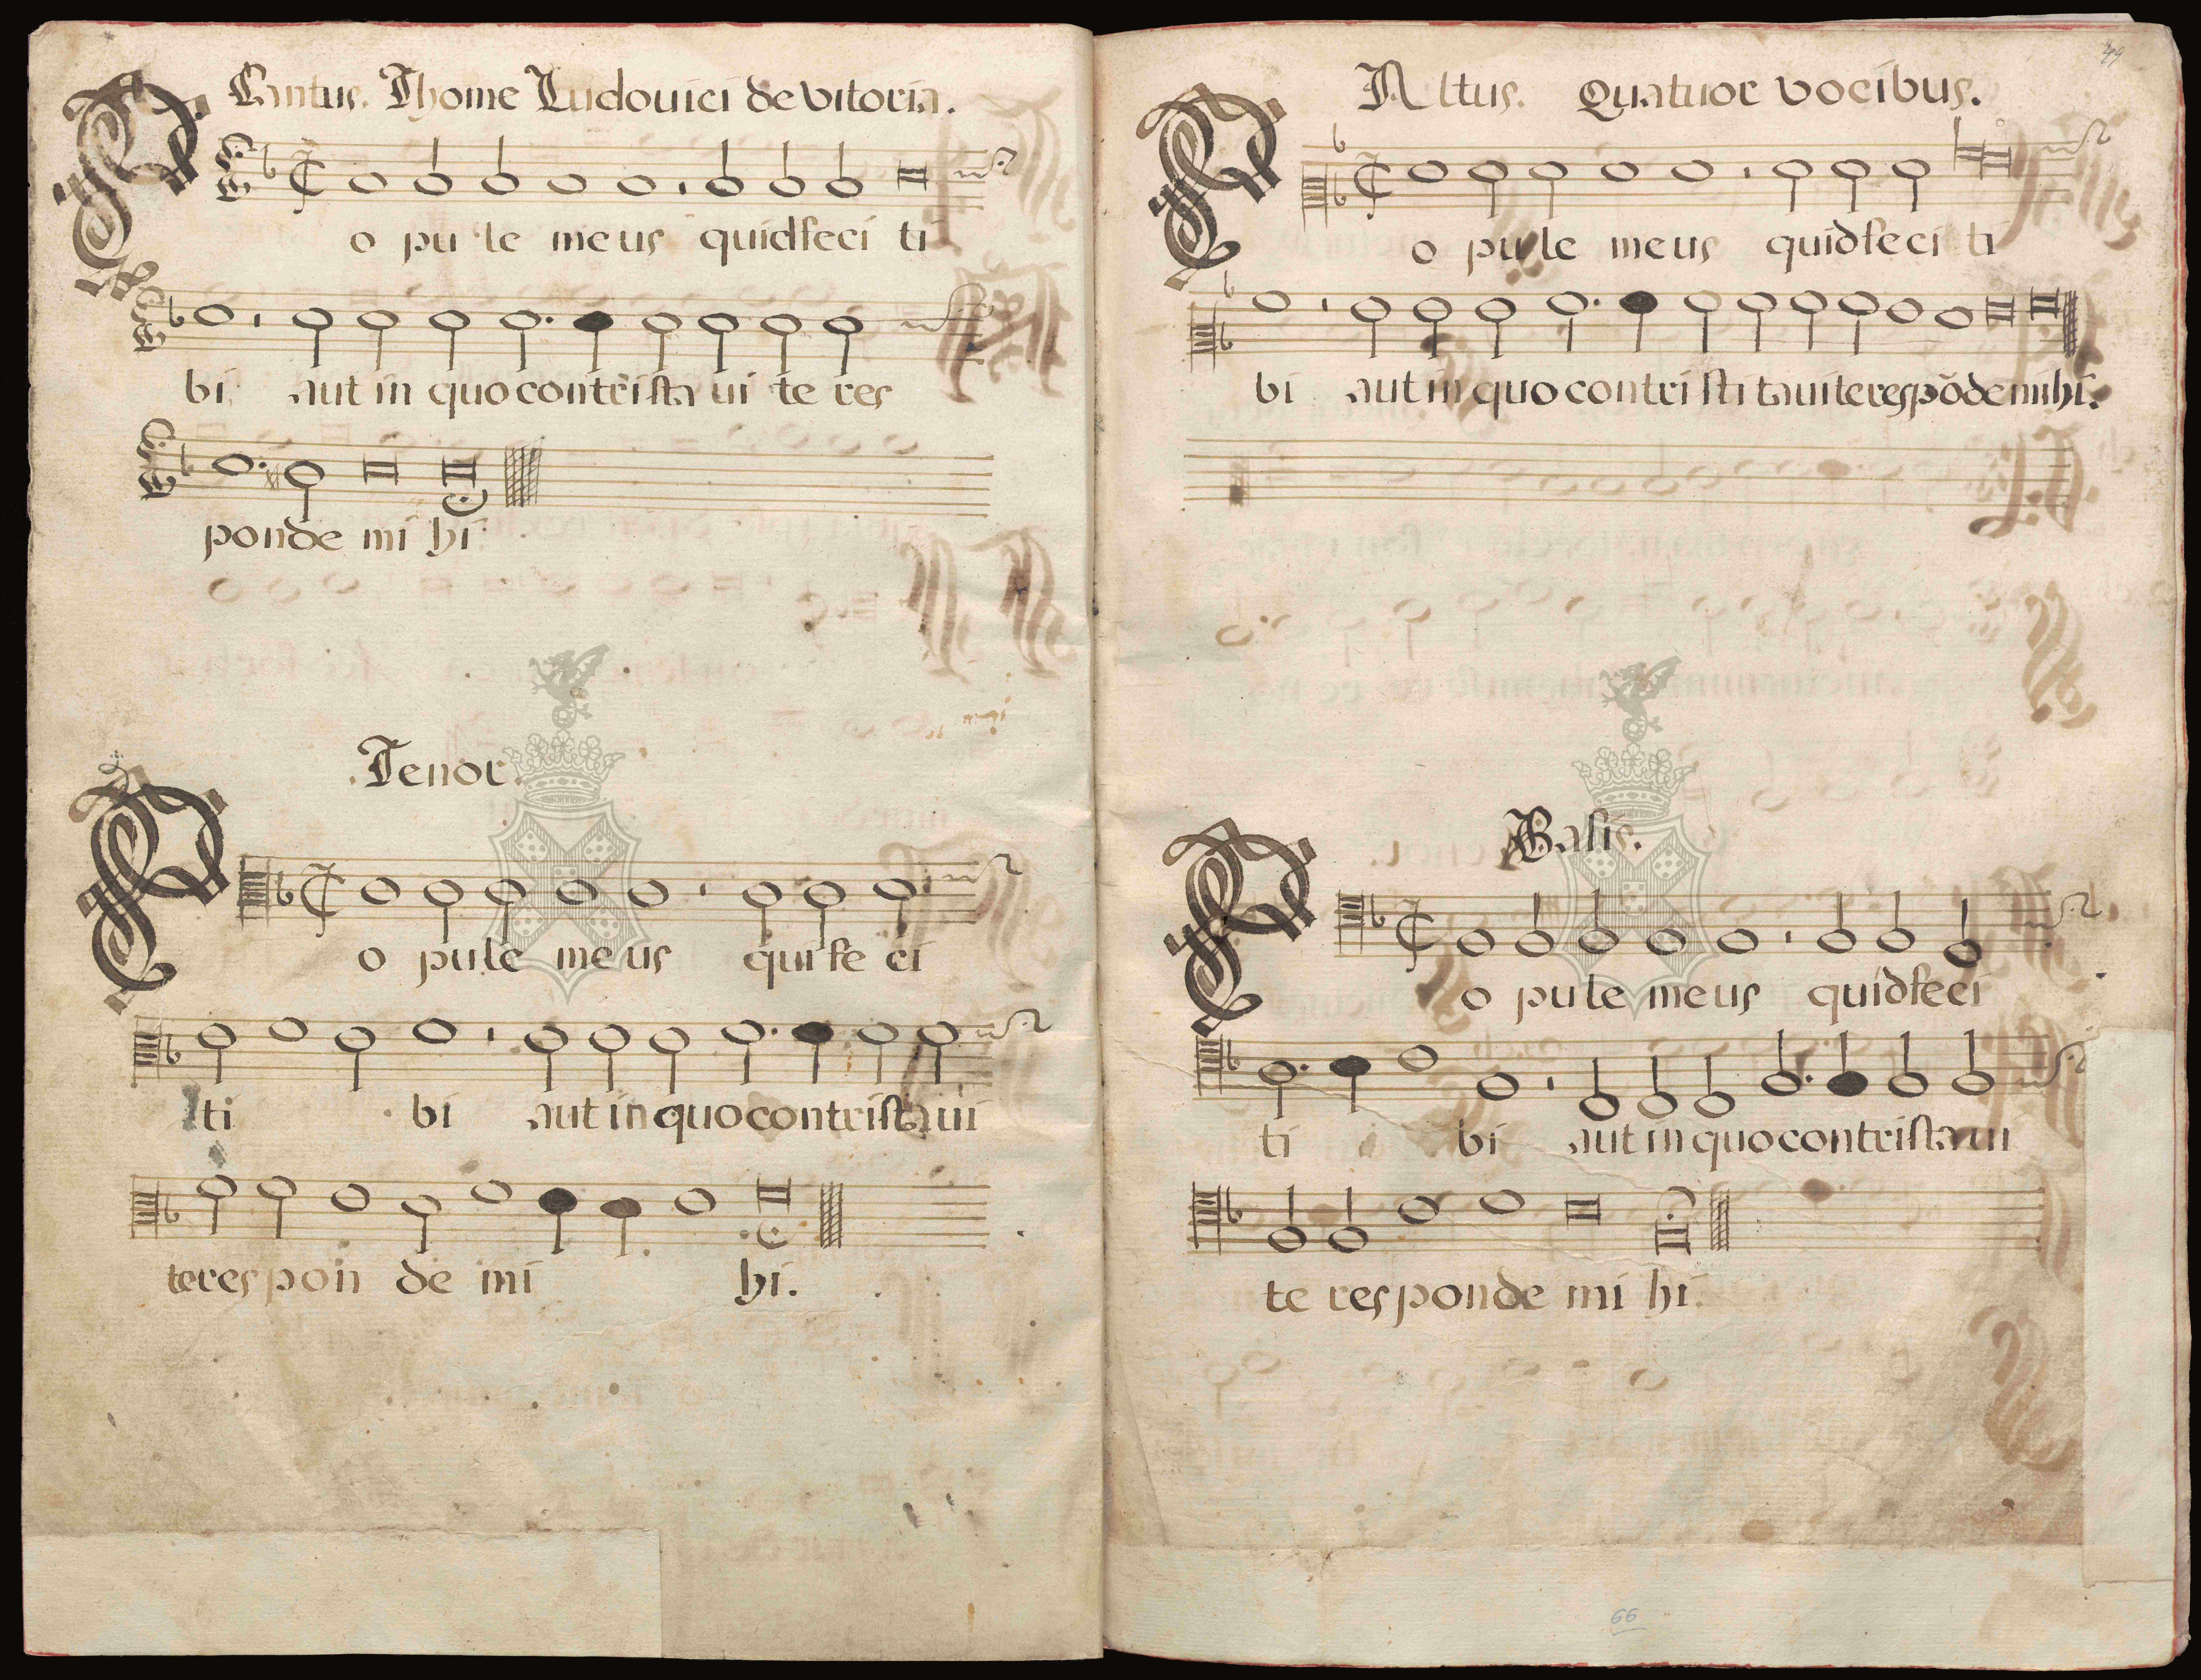 Cantus. Thome Ludouici de vitoria.
P o pu le me us quid feci ti
bi aut in quo contrista ui te res
ponde mi hi
Tenor.
P o pu le me us qui fe ci
ti bi aut in quo contristaui
te res pon de mi hi.
49
Altus. Quatuor vocibus.
P o pu le me us quid feci ti
bi aut in quo contri sti taui te respõde mihi.
Basis.
P o pu le me us quid feci
ti bi aut in quo contrista ui
te responde mi hi.
66